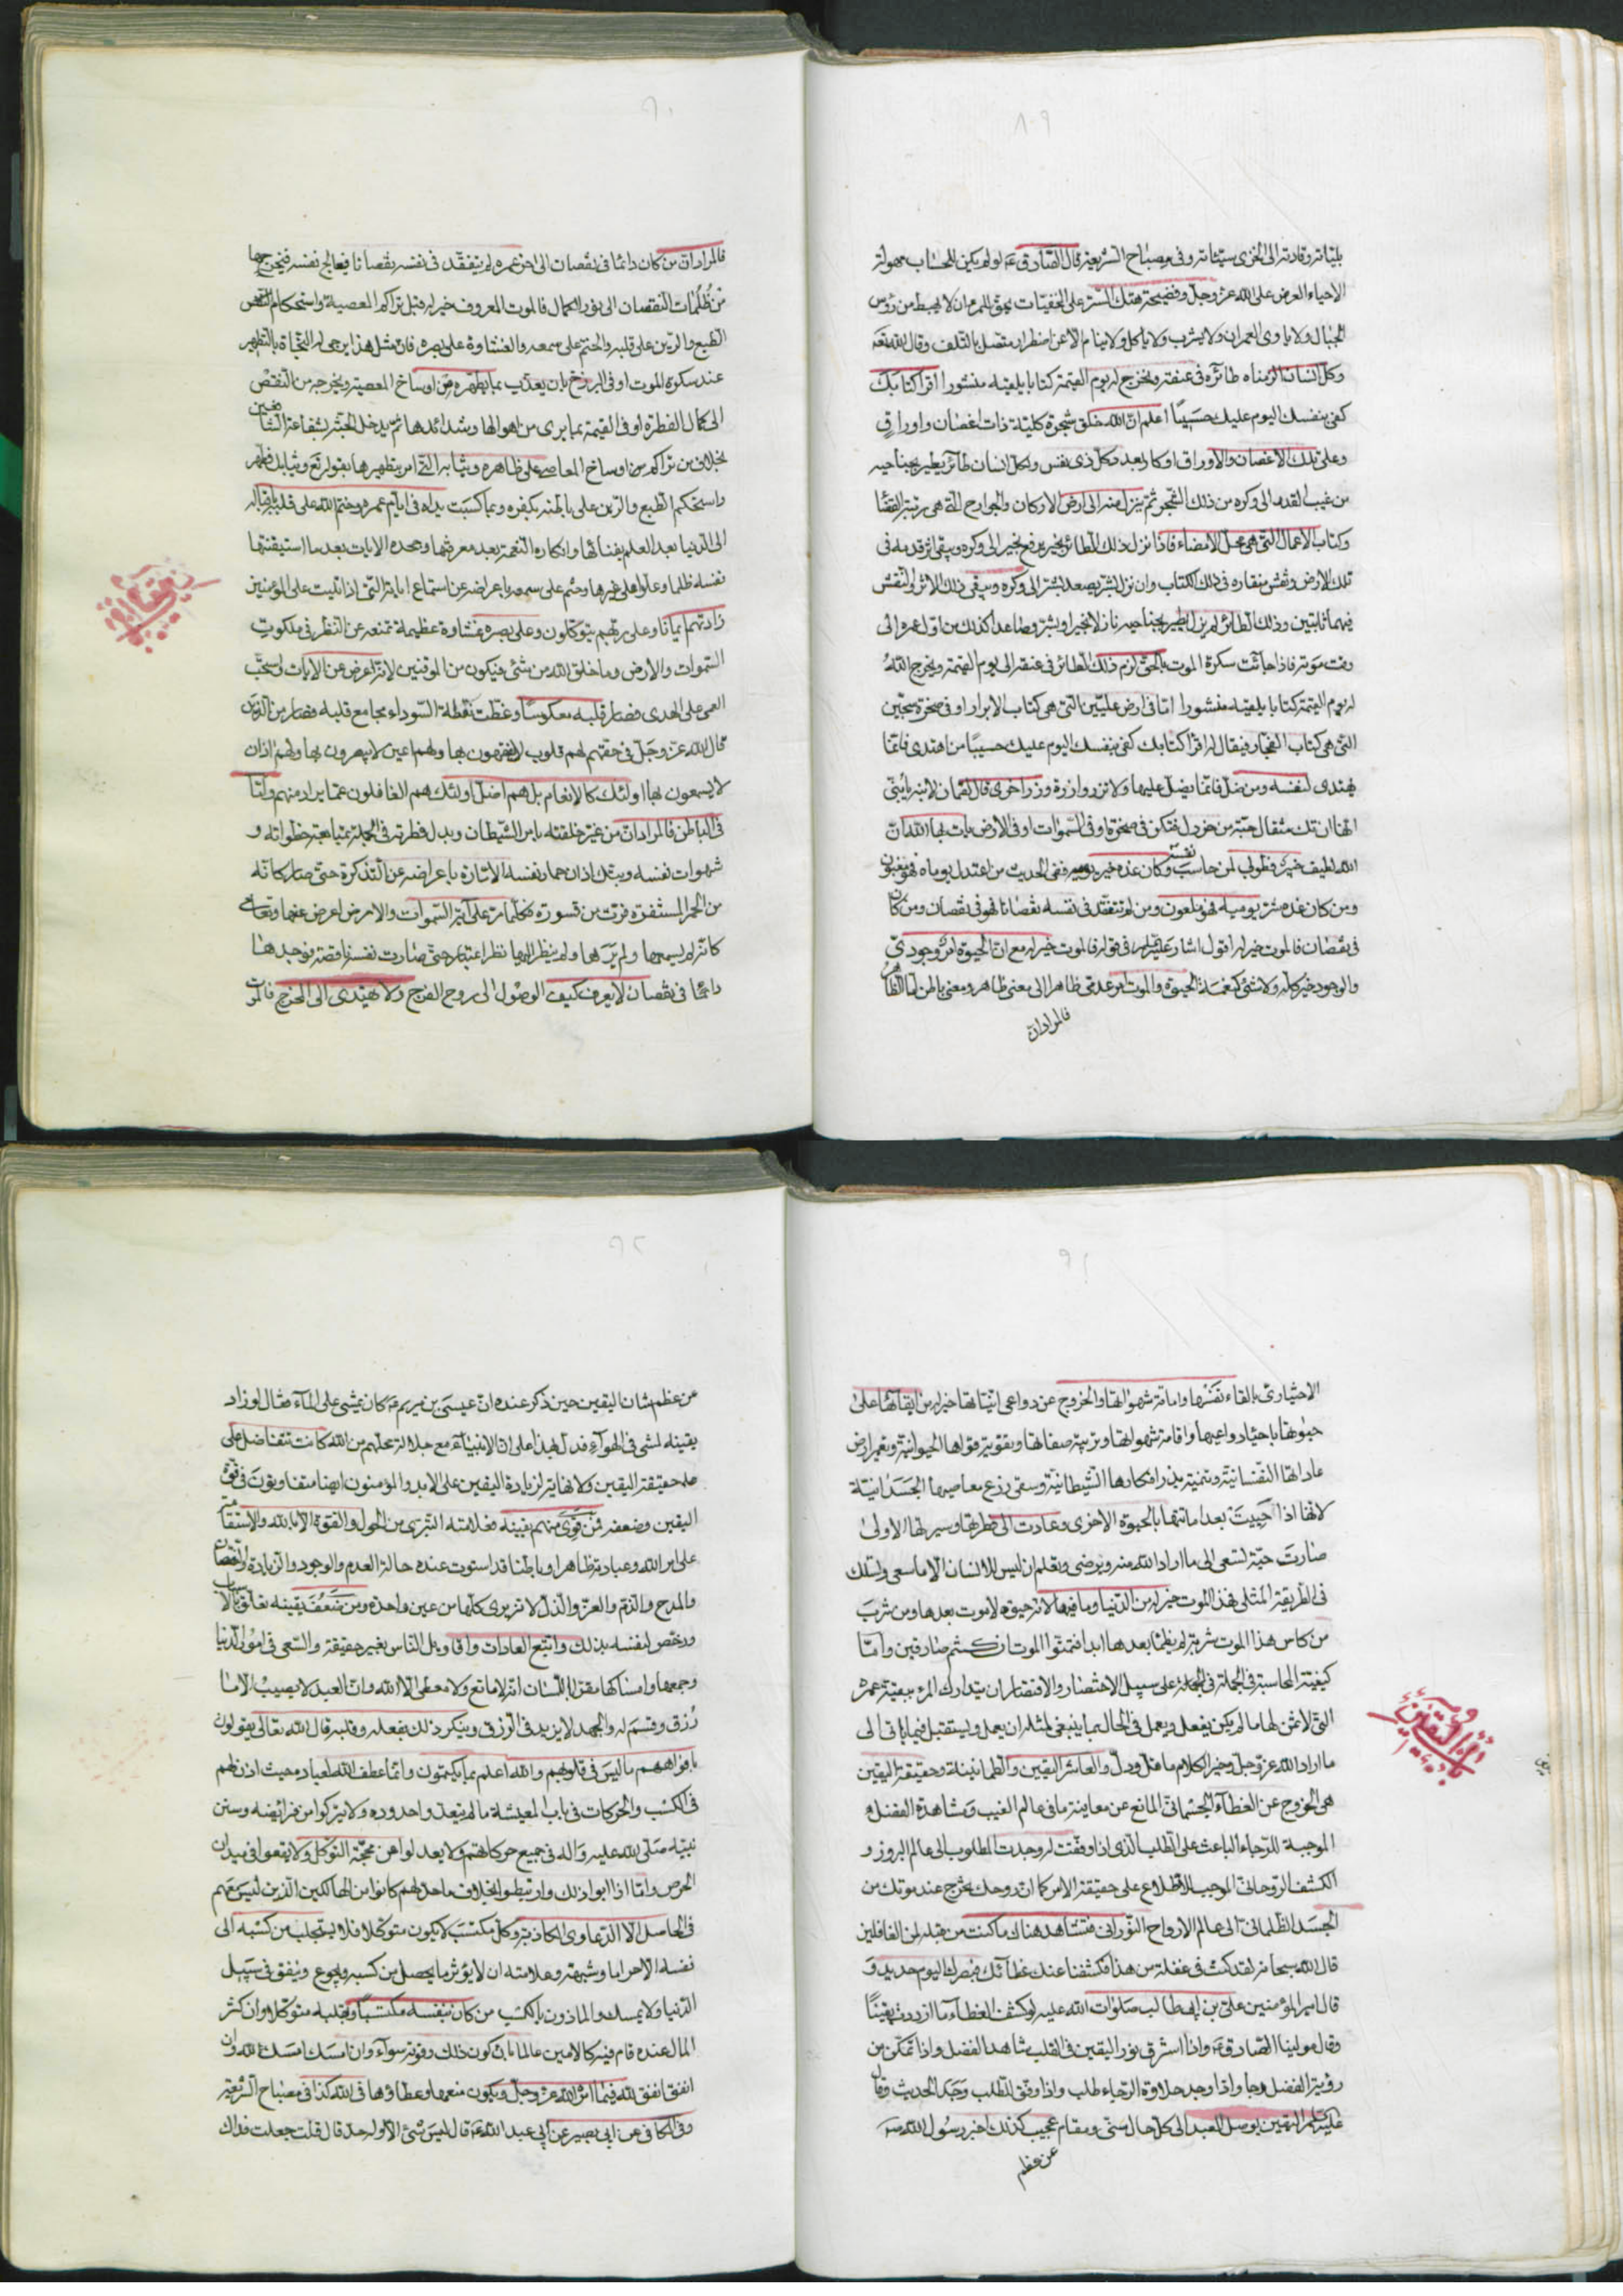 بلياته وقادته الى الخزى سيئاته وفى مصباح الشريعة قال الصادق ع لو لم يكن للحساب مهولة
الاحياء العرض على الله عز وجل وفضيحة هتك الستر على الخفيات لحق للمرء ان لا يهبط من رؤس
الجبال ولا ياوى العمران ولا يشرب ولا ياكل ولا ينام الا عن اضطرار متصل بالتلف وقال الله تع
وكل انسان الزمناه طائره فى عنقه ونخرج له يوم القيمة كتابا يلقيه منشورا اقرا كتابك
كفى بنفسك اليوم عليك حسيبا اعلم ان الله خلق شجرة كلية ذات اغصان واوراق
وعلى تلك الاغصان والاوراق اوكار بعدد كل ذى نفس ولكل انسان طائر يطير بجناحيه
من غيب القدم الى وكره من ذلك الشجر ثم ينزل منه الى ارض الاركان والجوارح التى هى رتبة القضا
وكتاب الاعمال التى هى محل الامضاء فاذا نزل ذلك الطائر بخير يرفع بخير الى وكره ويبقى اثر قدمه فى
تلك الارض ونقش منقاره فى ذلك الكتاب وان نزل بشر يصعد بشر الى وكره ويبقى ذلك الاثر والنقش
فيهما ثابتين وذلك الطائر لم يزل يطير بجناحيه نازلا بخير او بشر وصاعدا كذلك من اول عمره الى
وقت موته فاذا جائت سكرة الموت بالحق لزم ذلك الطائر فى عنقه الى يوم القيمة ويخرج الله
له يوم القيمة كتابا يلقيه منشورا اما فى ارض عليين التى هى كتاب الابرار او فى صخرة سجين
التى هى كتاب الفجار فيقال له اقرا كتابك كفى بنفسك اليوم عليك حسيبا من اهتدى فانما
يهتدى لنفسه ومن ضل فانما يضل عليها ولا تزر وازرة وزر اخرى قال لقمان لابنه يا بنى
انها ان تك مثقال حبة من خردل فتكن فى صخرة او فى السموات او فى الارض يات بها الله ان
الله لطيف خبير فطوبى لمن حاسب نفسه وكان غده خير يوميه ففى الحديث من اعتدل يوماه فهو مغبون
ومن كان غده شر يوميه فهو ملعون ومن لم يتفقد فى نفسه نقصانا فهو فى نقصان ومن كان
فى نقصان فالموت خير له اقول اشار عليه السلام فى قوله فالموت خير له مع ان الحيوة امر وجودى
والوجود خير كله ولا شئ كنعمة الحيوة والموت امر عدمى ظاهرا الى معنى ظاهر ومعنى باطن اما الظاهر
فالمراد ان
فالمراد ان من كان دائما فى نقصان الى اخر عمره لم يتفقد فى نفسه نقصانا فيعالج نفسه فيخرجها
من ظلمات النقصان الى نور الكمال فالموت المعروف خير له قبل تراكم المعصية واستحكام النقص
الطبع والرين على قلبه والختم على سمعه والغشاوة على بصره فان مثل هذا يرجى له النجاة بالتطهير
عند سكرة الموت او فى البرزخ بان يعذب بما يطهره من اوساخ المعصية ويخرجه من النقص
الى كمال الفطرة او فى القيمة بما يرى من اهوالها وشدائدها ثم يدخل الجنة بشفاعة الشافعين
بخلاف من تراكم من اوساخ المعاصى على ظاهره وثيابه التى امر بتطهيرها بقوله تع وثيابك فطهر
واستحكم الطبع والرين على باطنه بكفره وبما كسبت يداه فى ايام عمره وختم الله على قلبه باقباله
الى الدنيا بعد العلم بفنائها وانكاره النعمة بعد معرفتها وجحده الايات بعد ما استيقنتها
نفسه ظلما وعلوا على غيرها وختم على سمعه باعراضه عن استماع اياته التى اذا تليت على المؤمنين
زادتهم ايمانا وعلى ربهم يتوكلون وعلى بصره غشاوة عظيمة تمنعه عن النظر فى ملكوت
السموات والارض وما خلق الله من شئ فيكون من الموقنين لانه اعرض عن الايات واستحب
العمى على الهدى فصار قلبه معكوسا وغطت نقطة السوداء مجامع قلبه فصار من الذين
قال الله عز وجل فى حقهم لهم قلوب لا يفقهون بها ولهم اعين لا يبصرون بها ولهم اذان
لا يسمعون بها اولئك كالانعام بل هم اضل اولئك هم الغافلون عما يراد منهم واما
فى الباطن فالمراد ان من غير خلقته بامر الشيطان وبدل فطرته فى الجملة بمتابعة خطواته و
شهوات نفسه وبتك اذان حمار نفسه الامارة باعراضه عن التذكرة حتى صار كانه
من الحمر المستنفرة فرت من قسورة فكلما مر على آية السموات والارض اعرض عنها وتعامى
كانه لم يسمعها ولم يرها ولم ينظر اليها نظر اعتبار حتى صارت نفسه ناقصة فوجدها
دائما فى نقصان لا يعرف كيف الوصول الى روح الفرج ولا يهتدى الى المخرج فالموت
الاختيارى بالقاء نفسها واماتة شهواتها والخروج عن دواعى انياتها خير له من ابقائها على
حيوتها باحياء دواعيها واقامة شهواتها وتربية صفاتها وتقوية قواها الحيوانية وتعمير ارض
عاداتها النفسانية وتنمية بذر افكارها الشيطانية وسقى زرع معاصيها الجسدانية
لانها اذا احييت بعد اماتتها بالحيوة الاخرى وعادت الى فطرتها وسيرتها الاولى
صارت حية تسعى الى ما اراد الله منه ويرضى ويعلم ان ليس للانسان الا ما سعى وتسلك
فى الطريقة المثلى فهذا الموت خير له من الدنيا وما فيها لانه حيوة لا موت بعدها ومن شرب
من كاس هذا الموت شربة لم يظما بعدها ابدا فتمنوا الموت ان كنتم صادقين واما
كيفية المحاسبة فى الجملة على سبيل الاختصار والاقتصار ان يتدارك المرء ببقية عمره
التى لا ثمن لها ما لم يكن يفعل ويعمل فى الحال بما ينبغى لمثله ان يعمل ويستقبل فيما ياتى الى
ما اراد الله عز وجل وخير الكلام ما قل ودل والعاشر اليقين والطمانينة وحقيقة اليقين
هى الخروج عن الغطاء الجسمانى المانع عن معاينة ما فى عالم الغيب ومشاهدة الفضل
الموجبة للرجاء الباعث على الطلب الذى اذا وفقت له وجدت المطلوب الى عالم البروز و
الكشف الروحانى الموجب للاطلاع على حقيقة الامر كما ان روحك يخرج عند موتك من
الجسد الظلمانى الى عالم الارواح النورانى فتشاهد هناك ما كنت من قبله لمن الغافلين
قال الله سبحانه لقد كنت فى غفلة من هذا فكشفنا عنك غطائك فبصرك اليوم حديد و
قال امير المؤمنين على بن ابى طالب صلوات الله عليه لو كشف الغطاء ما ازددت يقينا
وقال مولينا الصادق ع واذا اشرق نور اليقين فى القلب شاهد الفضل واذا تمكن من
رؤية الفضل رجا واذا وجد حلاوة الرجاء طلب واذا وفق للطلب وجد الحديث وقال
عليه السلم اليقين يوصل العبد الى كل حال سنى ومقام عجيب كذلك اخبر رسول الله ص
عن عظم
باب اليقين
عن عظم شان اليقين حين ذكر عنده ان عيسى بن مريم ع كان يمشى على الماء فقال لو زاد
يقينه لمشى فى الهواء فدل بهذا على ان الانبياء ع مع جلالة محلهم من الله كانت تتفاضل على
حقيقة اليقين ولا نهاية لزيادة اليقين على الابد والمؤمنون ايضا متفاوتون فى قوة
اليقين وضعفه فمن قوى منهم يقينه فعلامته التبرى من الحول والقوة الا بالله والاستقامة
على امر الله وعبادته ظاهرا وباطنا قد استوت عنده حالة العدم والوجود والزيادة والنقصان
والمدح والذم والعز والذل لانه يرى كلها من عين واحدة ومن ضعف يقينه تعلق بالاسباب
ورخص لنفسه بذلك واتبع العادات واقاويل الناس بغير حقيقة والسعى فى امور الدنيا
وجمعها وامساكها مقرا باللسان انه لا مانع ولا معطى الا الله وان العبد لا يصيب الا ما
رزق وقسم له والجهد لا يزيد فى الرزق وينكر ذلك بفعله وقلبه قال الله تعالى يقولون
بافواههم ما ليس فى قلوبهم والله اعلم بما يكتمون وانما عطف الله لعباده حيث اذن لهم
فى الكسب والحركات فى باب المعيشة ما لم يتعدوا حدوده ولا يتركوا من فرائضه وسنن
نبيه صلى الله عليه وآله فى جميع حركاتهم ولا يعدلوا عن محجة التوكل ولا يقعوا فى ميدان
الحرص واما اذا ابوا ذلك وارتبطوا بخلاف ما حد لهم كانوا من الهالكين الذين ليس معهم
فى الحاصل الا الدعاوى الكاذبة وكل مكتسب لا يكون متوكلا فلا يستجلب من كسبه الى
نفسه الا حراما وشبهة وعلامته ان لا يؤثر ما يحصل من كسبه ويجوع وينفق فى سبيل
الدنيا ولا يمسك والماذون بالكسب من كان بنفسه مكتسبا وبقلبه متوكلا وان كثر
المال عنده قام فيه كالامين عالما بان كون ذلك وفوته سواء وان امسك امسك لله وان
انفق انفق لله فيما امر الله عز وجل ويكون منعها وعطاؤها فى الله كذا فى مصباح الشريعة
وفى الكافى عن ابى بصير عن ابى عبد الله ع قال ليس شئ الا وله حد قال قلت جعلت فداك